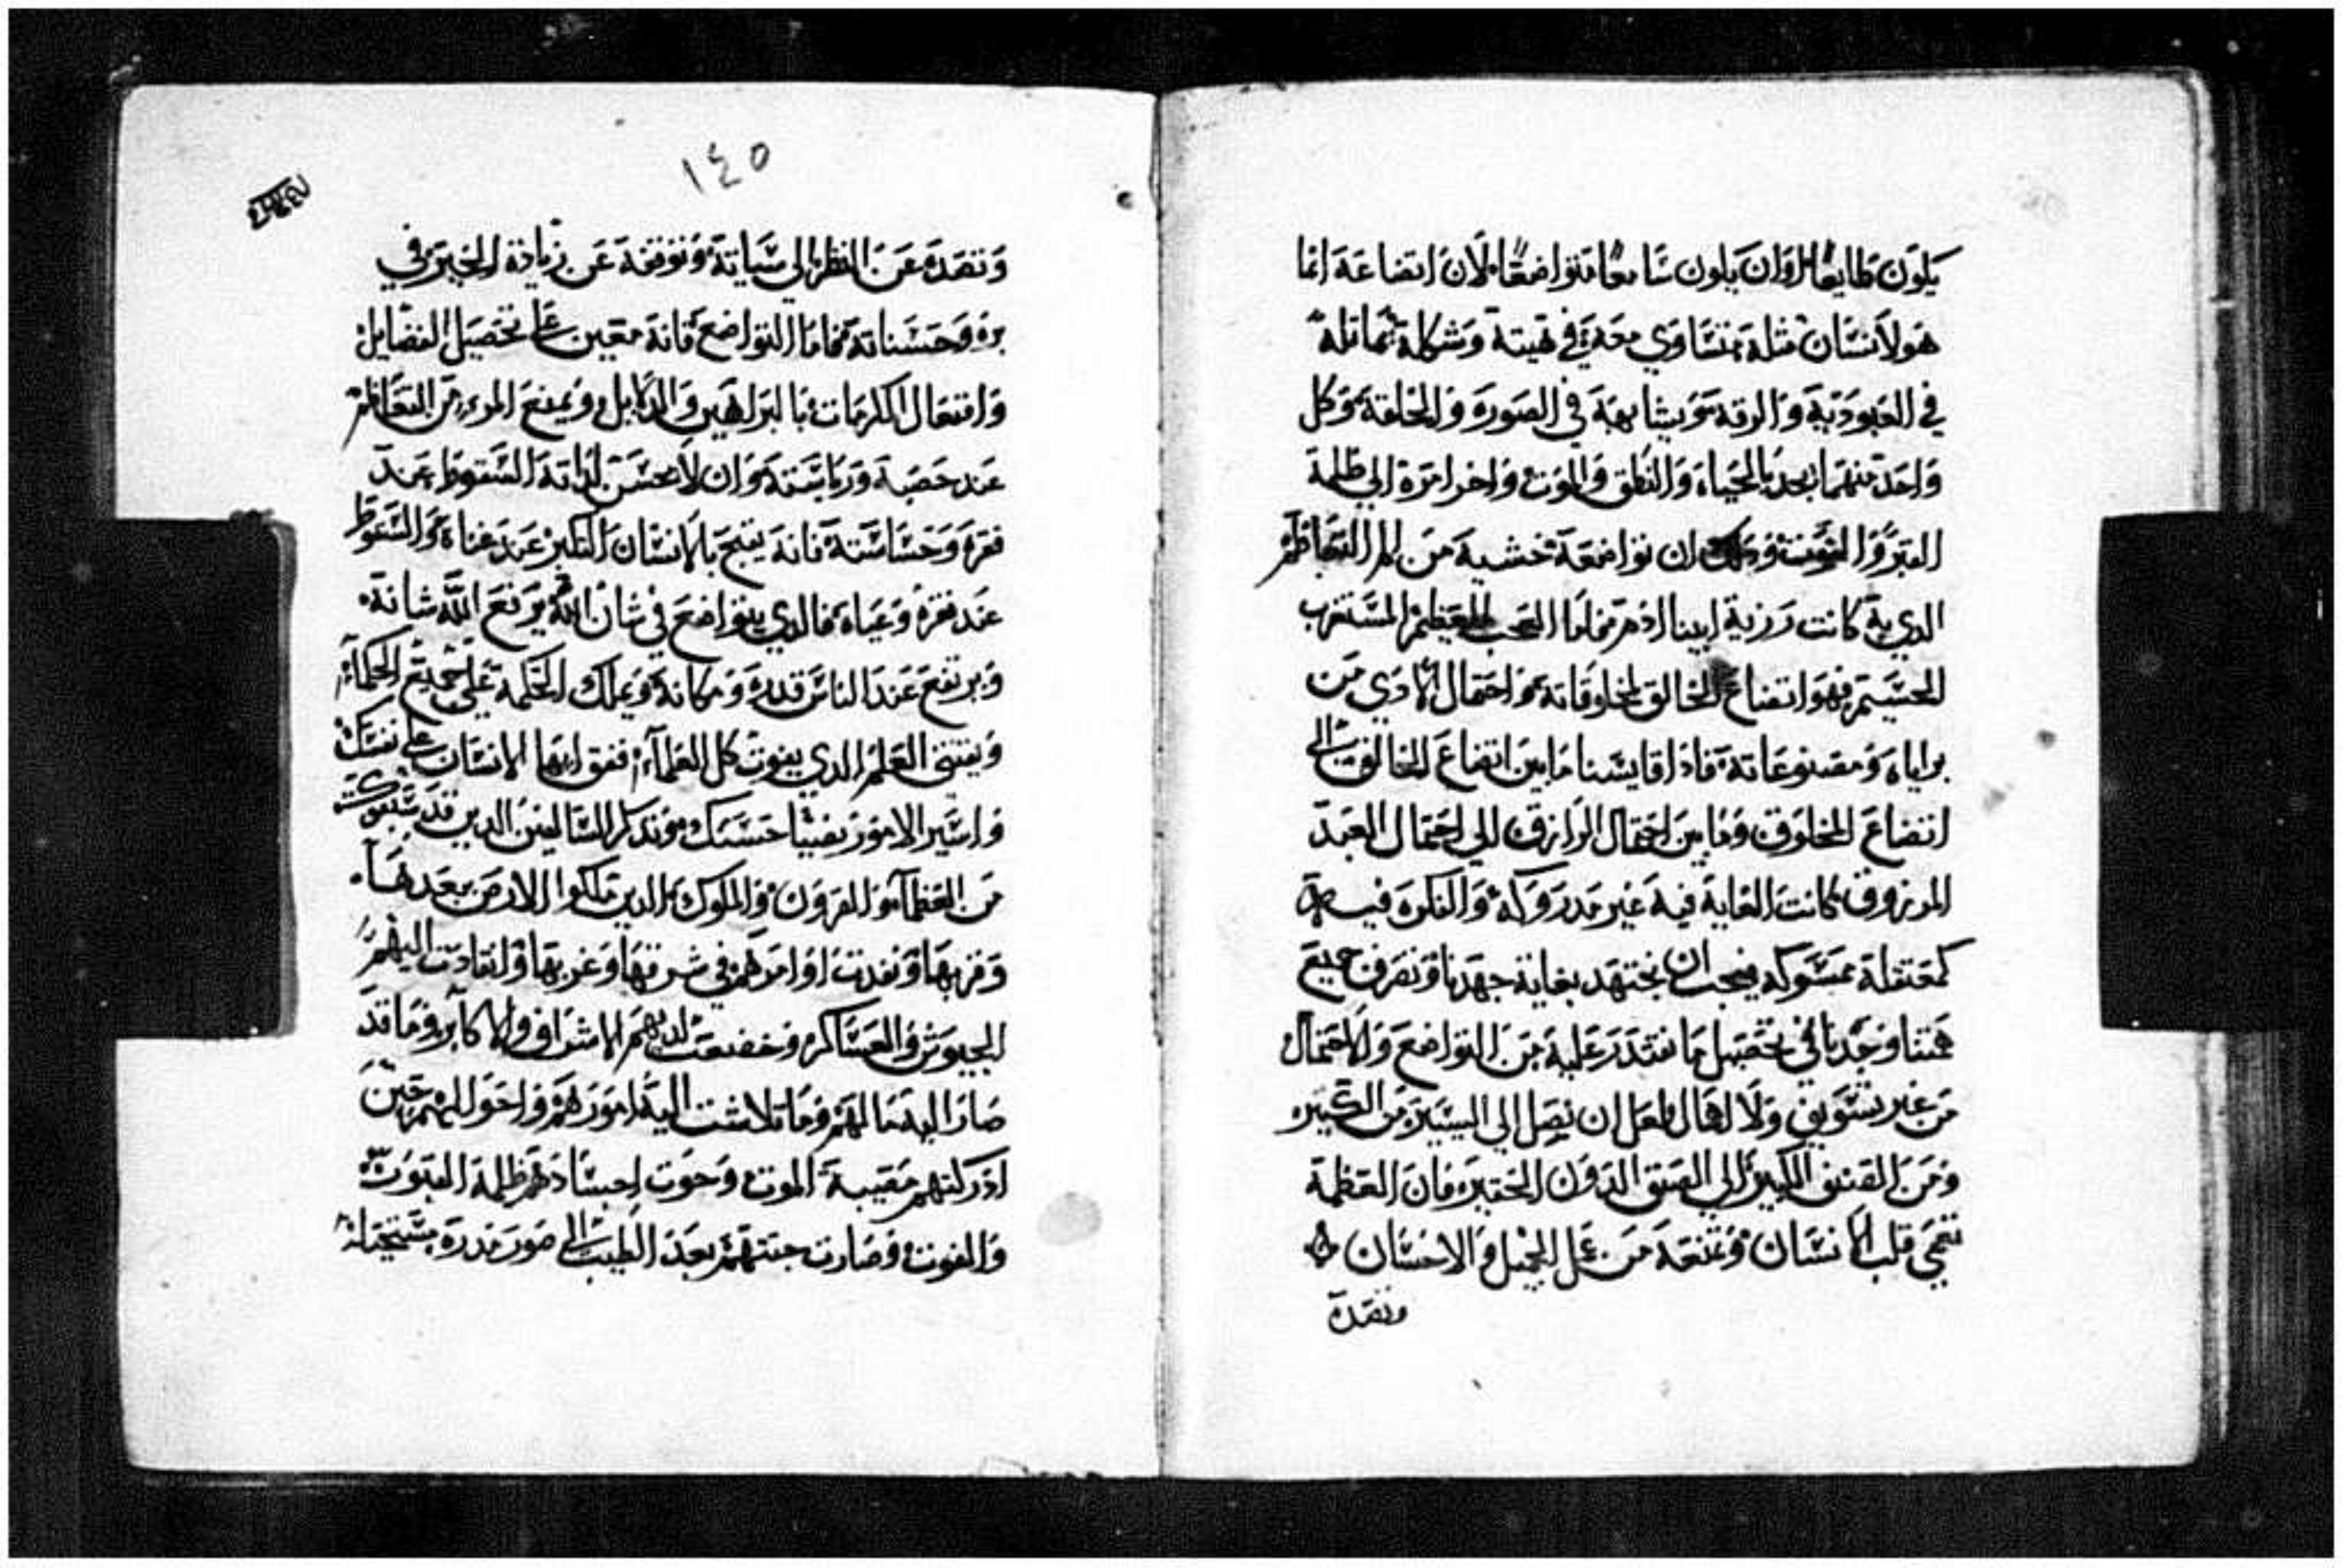 يكون طايعًا. او ان يكون سَامعًا متواضعًا. لان اتضاعه انما
هو لانسَان مثله. متسَاوي معه في هيته وشكله. مماثله
في العبوديه والرقه. ويشابهه في الصوره والخلقه. وكل
واحد منهما يحد بالحياه والنطق والموت. واخر امره الي ظلمة
القبر والفوت. وذلك ان تواضعه خشيه من الم التعاظم
الدي به كانت رزية ابينا ادم. فاما العجب العظيم المسَتغرب
الجسَيم. فهو اتضاع الخالق لمخلوقاته. واحتمال الادي من
براياه ومصنوعاته. فاذا قايسَنا ما بين اتضاع الخالق الي
اتضاع المخلوق وما بين احتمال الرازق الي احتمال العبد
المرزوق. كانت الغايه فيه غير مدروكه. والفكره فيه
كمعتقله ممسَوكه. فيجب ان نجتهد بغاية جهدنا ونصرف جميع
همتنا وجدنا في تحصيل ما نقتدر عليه من التواضع والاحتمال
من غير تسَويف ولا اهمال. لعل ان نصل الي اليسَير من الكتير
ومن الكبير الي الدون الحقير. فان العظمه
تعمي قلب الانسَان. وتمنعه من عمل الجميل والاحسَان
وتصده
١٤٥
وتصده عن النظر الي سَياته. وتوقفه عن زيادة الخير في
بره وحسَناته. فاما التواضع فانه معين علي تحصيل الفضايل
وافتعال المكرمات بالبراهين والدلايل. ويمنع المرء من التعاظم
عند خصبه ورياسَته. وان لا يحسَن لذاته السَقوط عند
فقره وخسَاسَته. فانه يقبح بالانسَان التكبر عند غناه. والسَقوط
عند فقره وعياه. فالدي يتواضع في شان الله يرفع الله شانه.
ويرتفع عند الناس قدره ومكانه. ويملك الحكمه علي جميع الحكمآء
ويقتني العلم الدي يفوت كل العلمآء. ففق ايها الانسَان علي نفسَك
واسَير الامور بحسَك. وتدكر السَالفين الدين قد سَبقوك
من العظمآء والقرون. والملوك الدين ملكوا الارض بعدها.
وقربها. ونفدت اوامرهم في شرقها وغربها. وانقادت اليهم
الجيوش والعسَاكر. وخضعت لديهم الاشراف والاكابر. وما قد
صار اليه حالهم. وما تلاشت اليه امورهم واحوالهم. حين
ادركتهم مصيبة الموت. وحوت اجسَادهم ظلمة القبور
والفوت. وصارت جتتهم بعد الطيب الي صور مدره